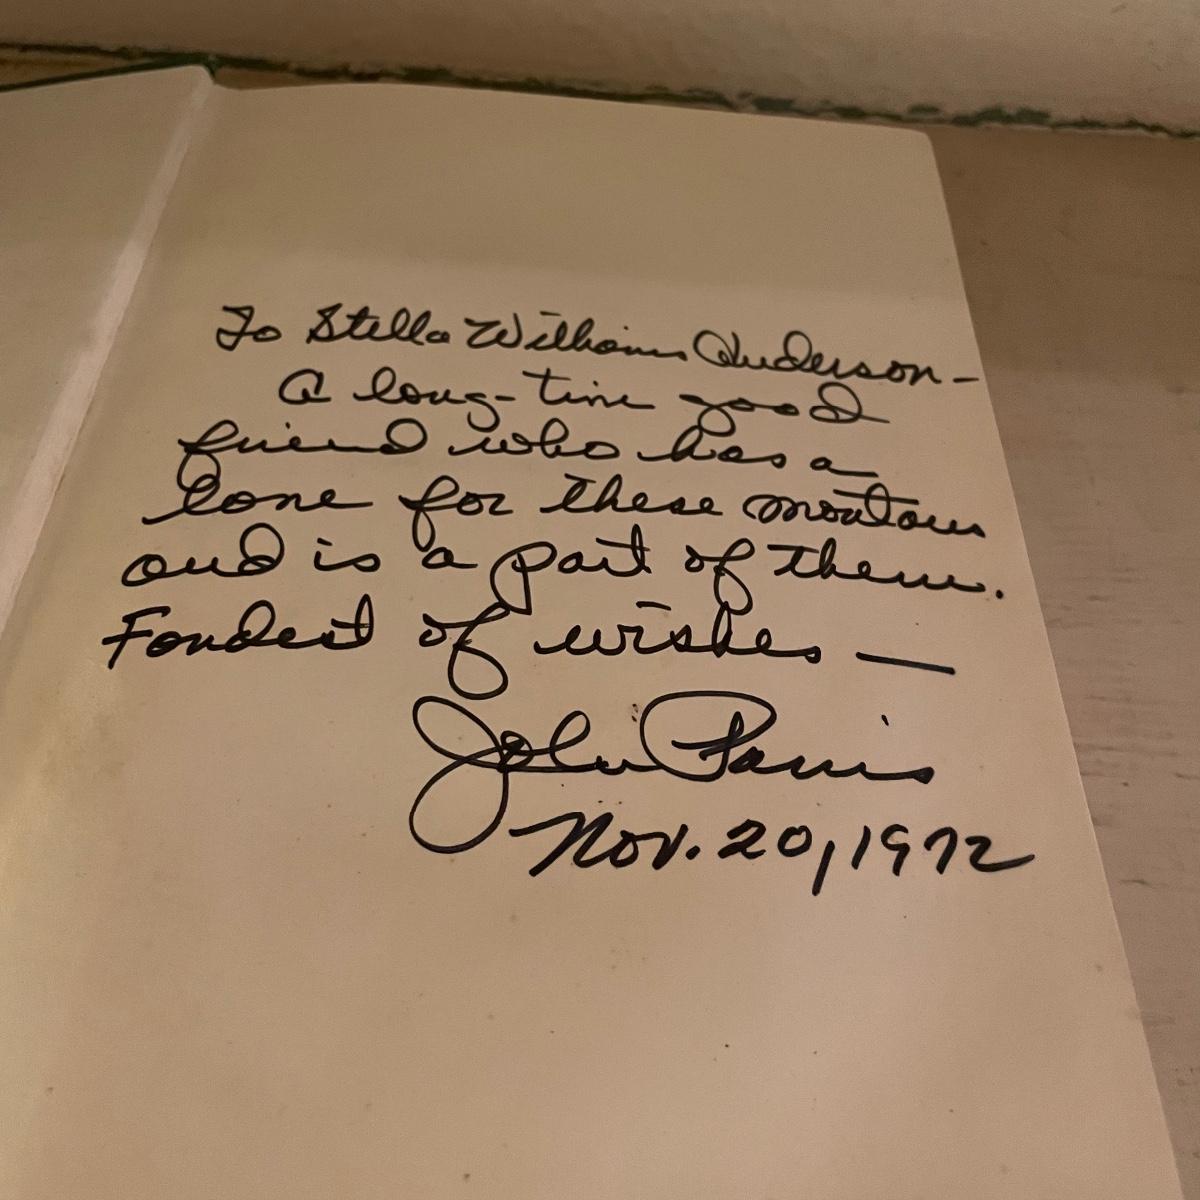 To Stella Williams Anderson -
A long-time good
friend who has a
love for these mountains
and is a part of them.
Fondest of wishes —
John Parris
Nov. 20, 1972